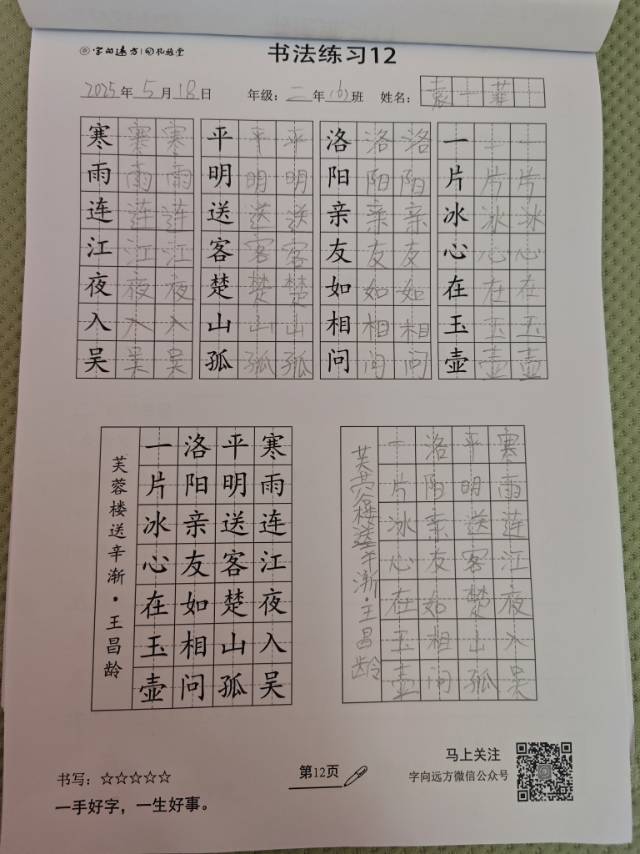 字向远方
书法练习12
2025年5月18日 年级：二年(6)班 姓名：袁一菲
寒寒寒 平平平 洛洛洛 一一一
雨雨雨 明明明 阳阳阳 片片片
连连连 送送送 亲亲亲 冰冰冰
江江江 客客客 友友友 心心心
夜夜夜 楚楚楚 如如如 在在在
入入入 山山山 相相相 玉玉玉
吴吴吴 孤孤孤 问问问 壶壶壶
寒雨连江夜入吴
平明送客楚山孤
洛阳亲友如相问
一片冰心在玉壶
芙蓉楼送辛渐·王昌龄
寒雨连江夜入吴
平明送客楚山孤
洛阳亲友如相问
一片冰心在玉壶
芙蓉楼送辛渐·王昌龄
书写：☆☆☆☆☆
一手好字，一生好事。
第12页
马上关注
字向远方微信公众号